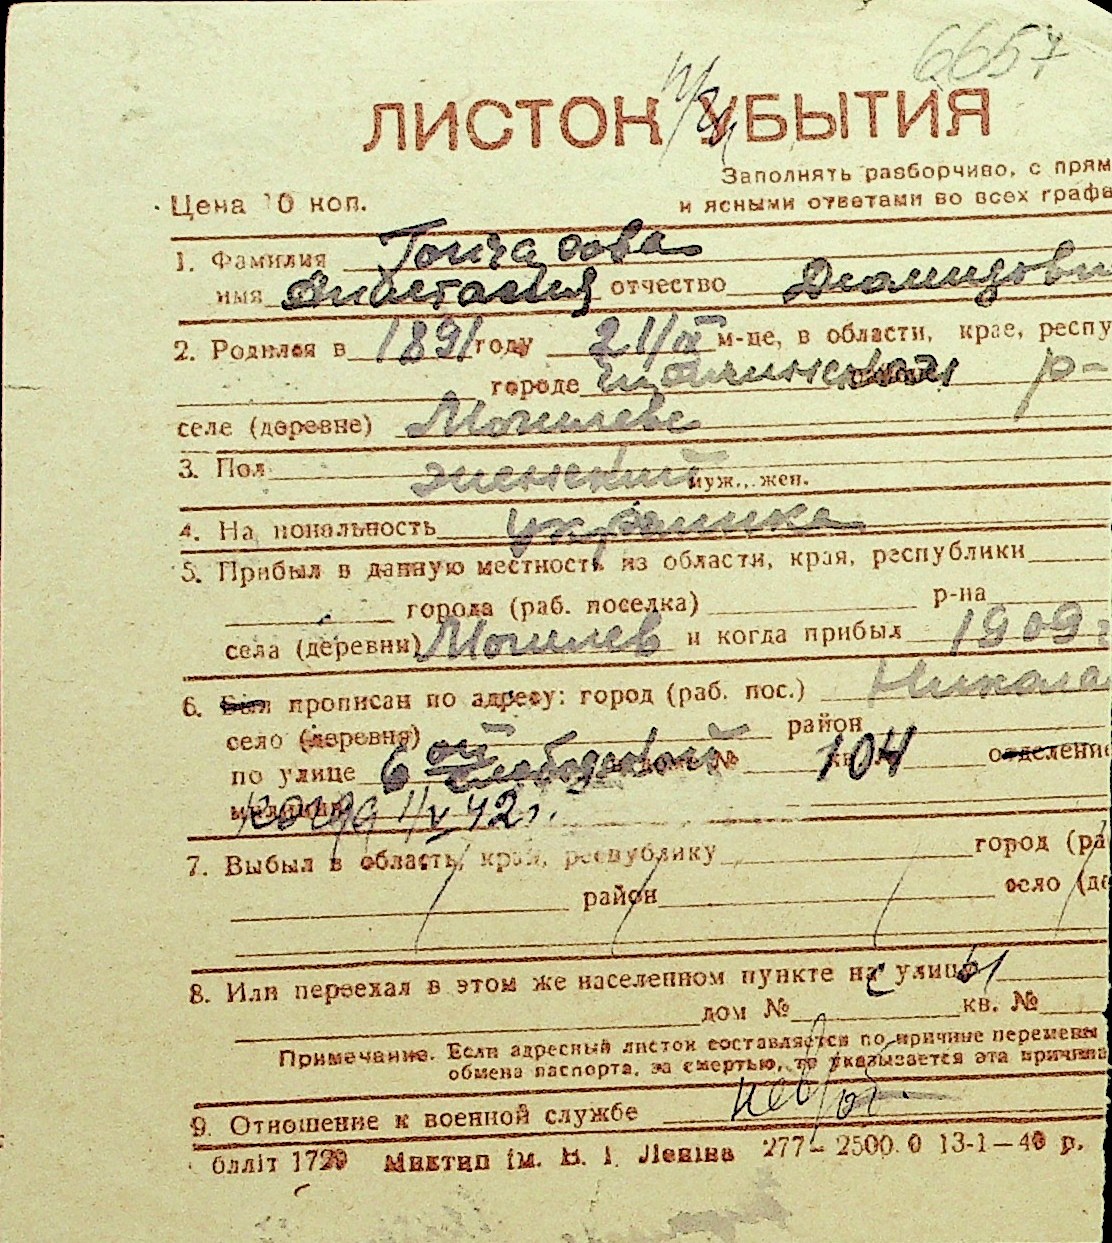 6657
ЛИСТОК УБЫТИЯ
Заполнять разборчиво, с прям
Цена 10 коп.
и ясными ответами во всех графа
1. Фамилия Гончарова
имя Анастасия отчество Диомидовн
2. Родился в 1891 году 21/IX м-це, в области, крае, респу
городе р-
селе (деревне) Могилеве
3. Пол женский муж., жен.
4. Национальность украинка
5. Прибыл в данную местность из области, края, республики
города (раб. поселка) р-на
села (деревни) Могилев и когда прибыл 1909 г
6. Был прописан по адресу: город (раб. пос.) Никола
село (деревня) район
по улице 6ой слободской № 104 отделение
милиции когда 1/V 42 г.
7. Выбыл в область, край, республику город (ра
район село (де
8. Или переехал в этом же населенном пункте на улицу
дом № кв. №
Примечание. Если адресный листок составляется по причине перемены
обмена паспорта, за смертью, то указывается эта причина
9. Отношение к военной службе
блліт 1729 Миктип ім. В. І. Леніна 277– 2500.0 13-1–40 р.